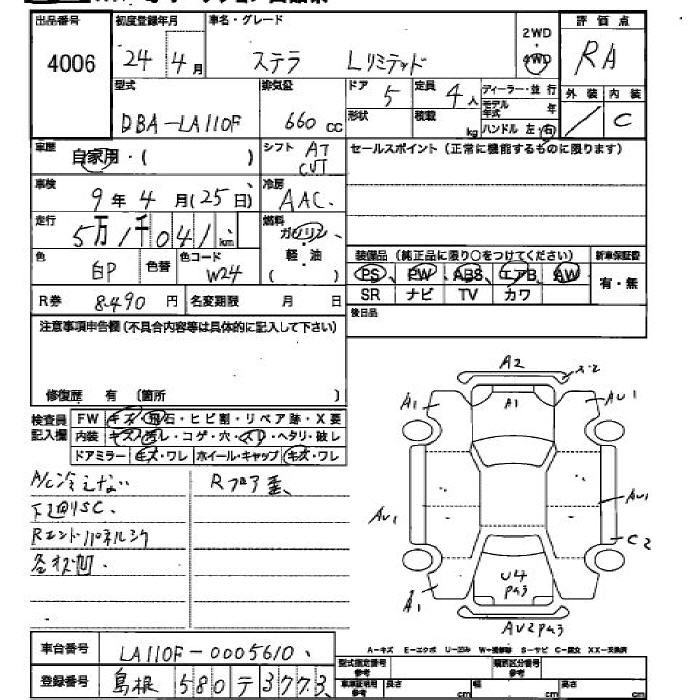 出品番号 初度登録年月 車名・グレード 2WD ・ 4WD 評価点
4006 24年 4月 ステラ Lリミテッド RA
型式 排気量 ドア 定員 ディーラー・並行 外装 内装
DBA-LA110F 660cc 5 4人 モデル年式 年 / C
形状 積載 kg ハンドル 左・右
車歴 自家用・( ) シフト AT CVT セールスポイント(正常に機能するものに限ります)
車検 9年4月(25日) 冷房 AAC
走行 5万1千041km 燃料 ガソリン・軽・油 ( )
色 白P 色替 色コード W24
装備品(純正品に限り○をつけてください) 新車保証書
PS PW ABS エアB AW 有・無
SR ナビ TV カワ
R券 8.490円 名変期限 月 日
後日品
注意事項申告欄(不具合内容等は具体的に記入して下さい)
修復歴 有 〔箇所 〕
検査員記入欄 FW キズ・飛石・ヒビ割・リペア跡・X要
内装 キズ・汚レ・コゲ・穴・スレ・ヘタリ・破レ
ドアミラー キズ・ワレ ホイール・キャップ キズ・ワレ
A/C冷えない Rフロア歪
下廻りSC.
Rエンドパネルシワ
各オス凹
A2
A1 A1 AU1
AU1 AU1
C2
U4
Pa3
A1
AU2Pa3
車台番号 LA110F-0005610
登録番号 島根 580 テ 3773
A-キズ E-エクボ U-凹み W-補修跡 S-サビ C-腐食 XX-交換済
型式指定番号 参考 類別区分番号 参考
車庫証明用 参考 長さ cm 幅 cm 高さ cm